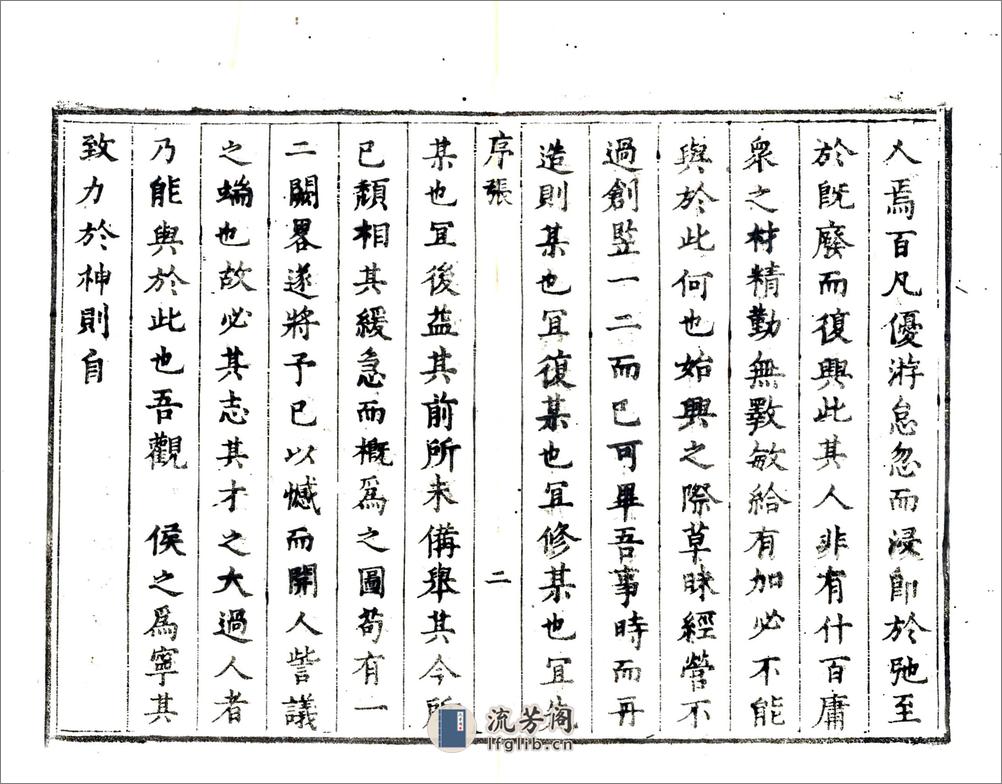 人焉百凡優游怠忽而浸卽於弛至
於旣廢而復興此其人非有什百庸
衆之材精勤無斁敏給有加必不能
與於此何也始興之際草昧經營不
過創竪一二而已可畢吾事時而再
造則某也宜復某也宜修某也宜先
序張
二
某也宜後益其前所未備舉其今所
已頹相其緩急而概爲之圖茍有一
二闕畧遂將予已以憾而開人訾議
之端也故必其志其才之大過人者
乃能與於此也吾觀　侯之爲寧其
致力於神則自
流芳阁
lfglib.cn